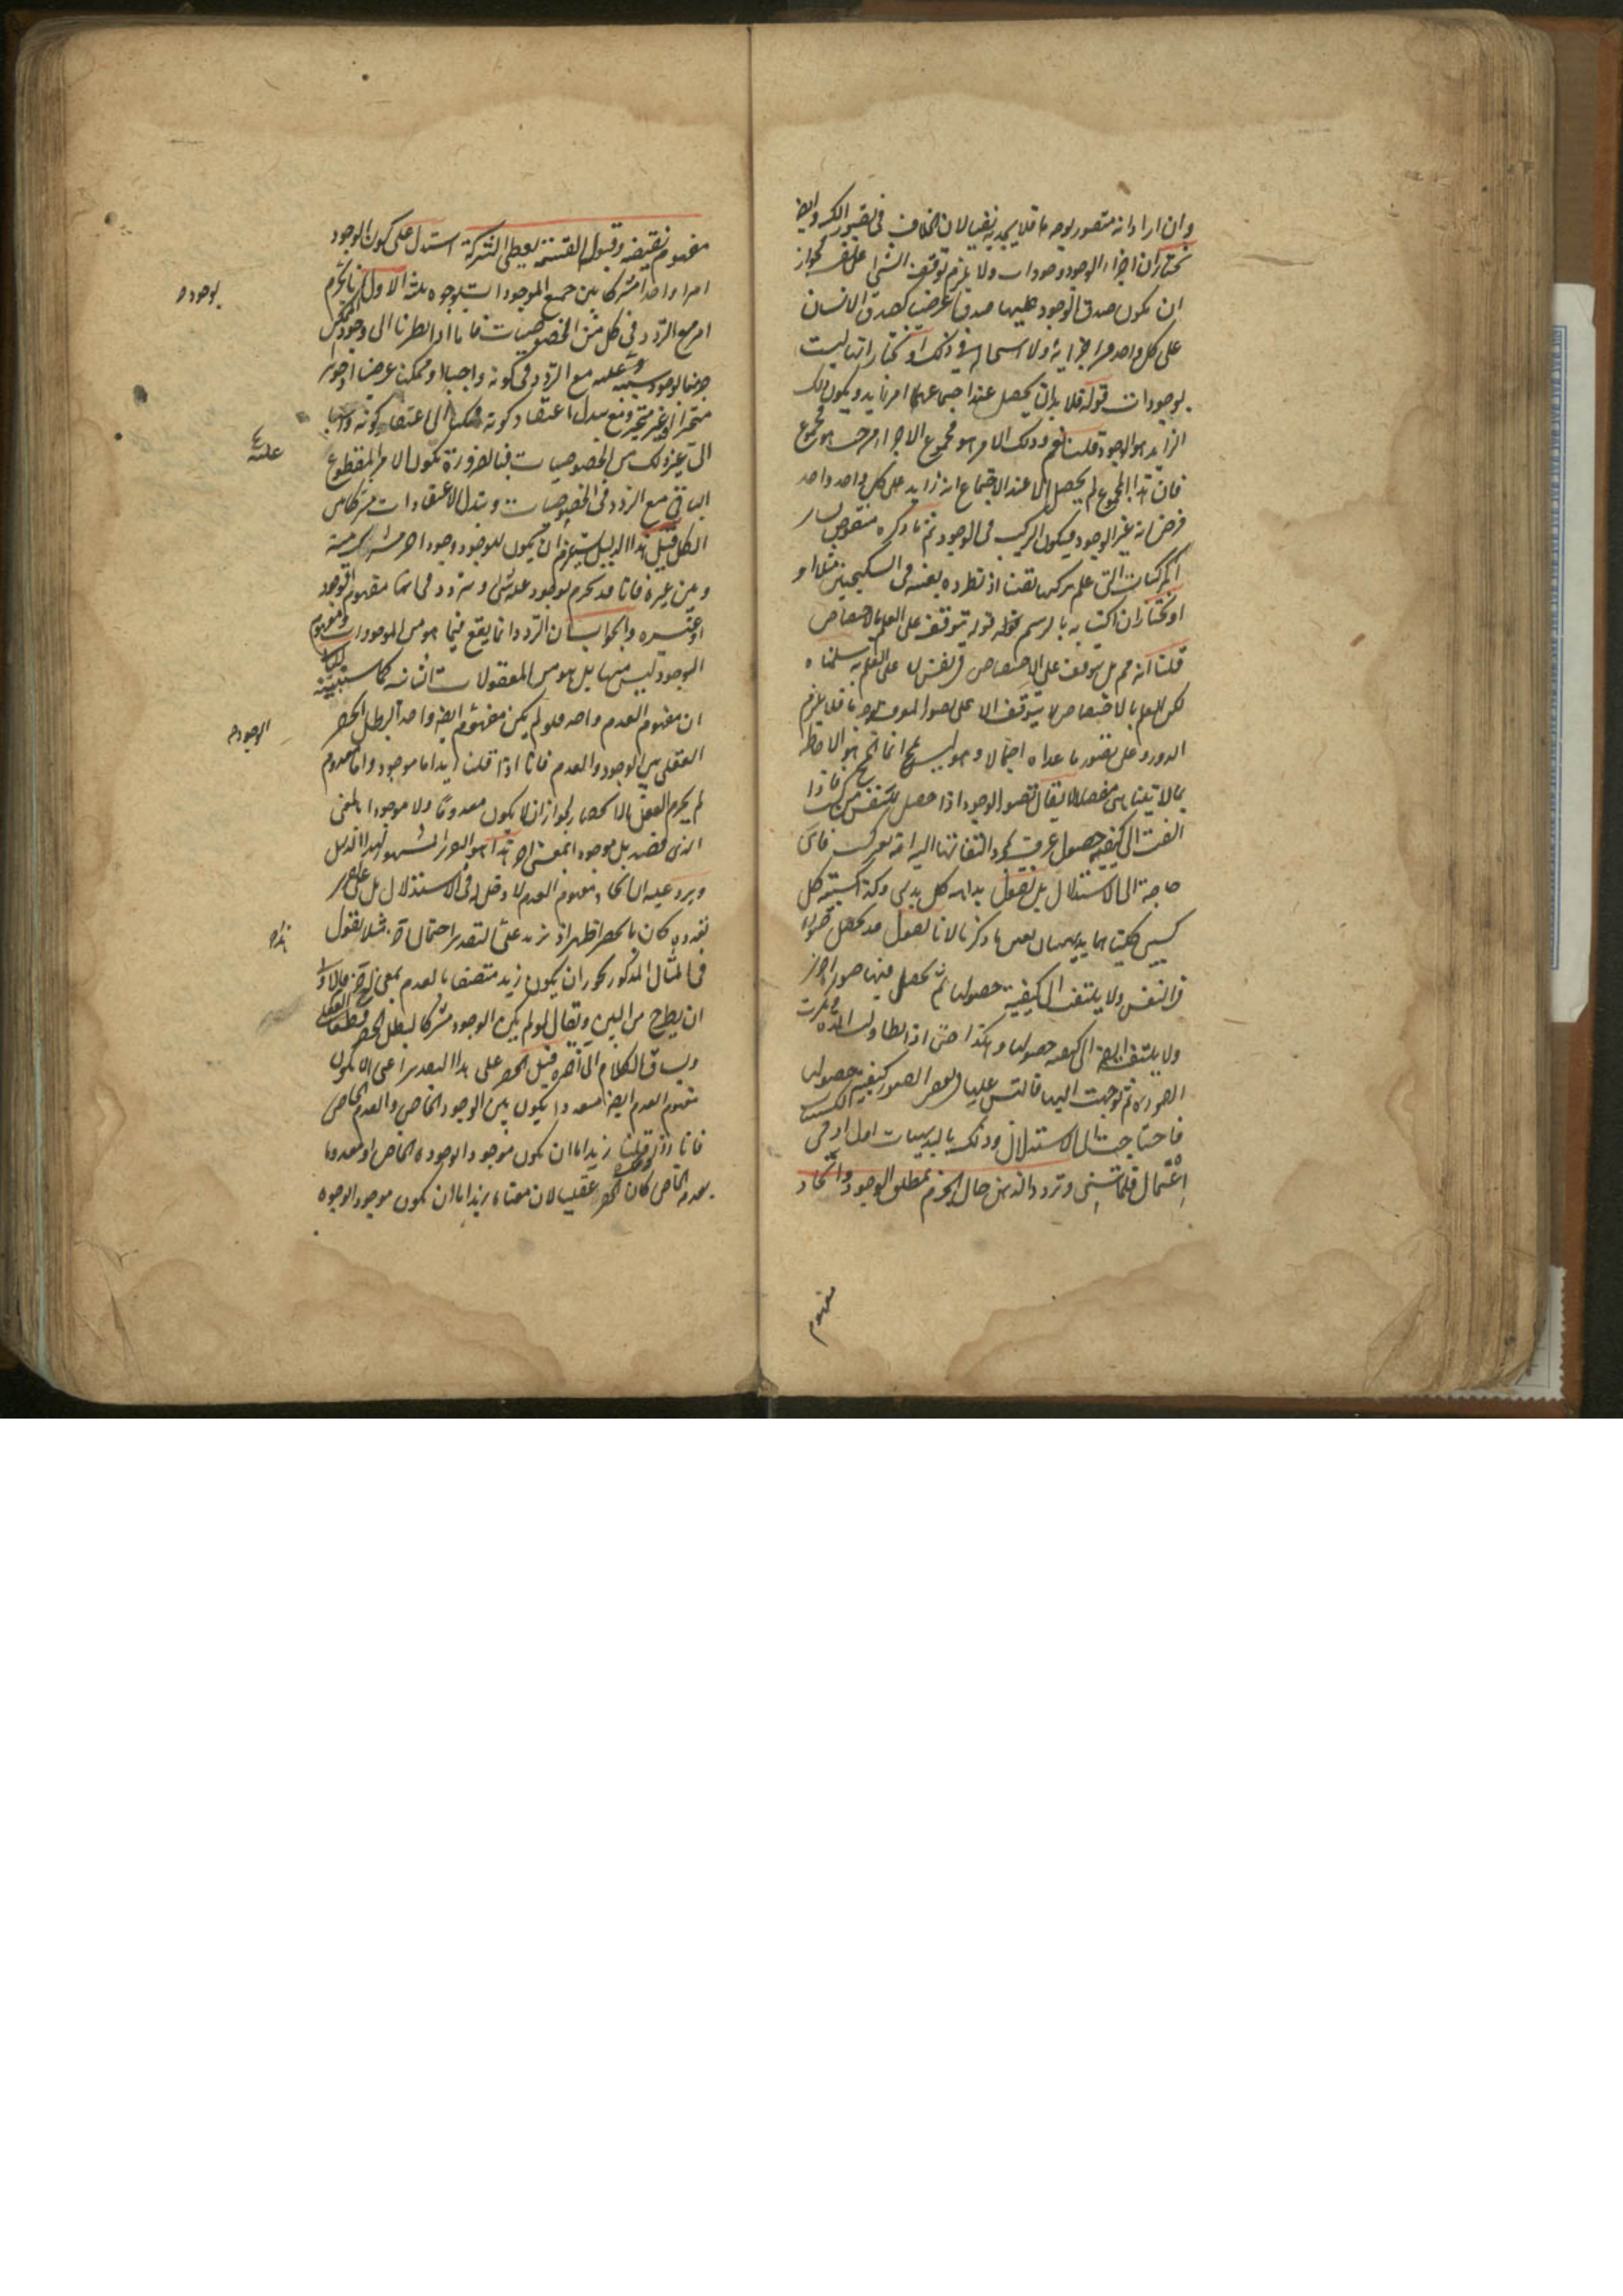 وان اراد انه متصور بوجه ما فلا يجديه نفعا لان الخلاف فى تصور الكنه وايضا
نختار ان اجزاء الوجود وجودات ولا يلزم توقف الشئ على نفسه لجواز
ان يكون صدق الوجود عليها صدقا عرضيا كصدق الانسان
على كل واحد من اجزائه ولا استحالة فى ذلك او نختار انها ليست
بوجودات قوله فلا بد ان يحصل عند اجتماعها امر زايد ويكون ذلك
الزايد هو الوجود قلنا نعم وذلك الامر هو مجموع الاجزاء من حيث هو مجموع
فان هذا المجموع لم يحصل الا عند الاجتماع انه زايد على كل واحد واحد
فرض انه غير الوجود فيكون التركيب فى الوجود ثم ما ذكره منقوض بسائر
المركبات التى علم تركبها يقينا اذ نطرده بعينه فى السكنجبين مثلا او
او نختار ان اكتسابه بالرسم قوله يتوقف على العلم بالاختصاص
قلنا انه مم بل يتوقف على الاختصاص فى نفس لا على العلم به سلمناه
لكن العلم بالاختصاص لا يتوقف الا على تصور المعرف بوجه ما فلا يلزم
الدور وعلى تصور ما عداه اجمالا وهو ليس بمح انما المح هو الاحاطة
بما لا يتناهى مفصلا لا يقال تصور الوجود اذا حصل للنفس فاذا
التفت الى كيفية حصوله عرفت بمجرد التفاتها اليه انه فاى
حاجة الى الاستدلال بل نقول بداهة كل بديهى وكذا كسبية كل
كسبى كلتاهما بديهيتان بعين ما ذكر لانا نقول قد يحصل صورة
فى النفس ولا يلتفت الى كيفية حصولها ثم يحصل فيها صور اخر
ولا يلتفت ايضا الى كيفية حصولها وهكذا حتى اذا تطاولت المدة وكثرت
الصور ثم توجهت اليها فالتبس عليها فى بعض الصور كيفية حصولها
فاحتاجت الى الاستدلال وذلك بالبديهيات اول
وتردد الذهن حال الجزم بمطلق الوجود واتحاد
مفهوم
مفهوم نقيضه وقبول القسمة يعطى الشركة استدل على كون الوجود
امرا واحدا مشتركا بين جميع الموجودات بوجوه ثلثة الاول انا نجزم
امر مع التردد فى كل من الخصوصيات فانا اذا نظرنا الى وجود الممكن
جزمنا بوجود سببه وعلته مع التردد فى كونه واجبا او ممكنا عرضا او جوهرا
متحيزا او غير متحيز ومع تبدل اعتقاد كونه ممكنا الى اعتقاد كونه واجبا
الى غير ذلك من الخصوصيات فبالضرورة يكون الامر المقطوع
الباقى مع التردد فى الخصوصيات وتبدل الاعتقادات مشتركا بين
الكل قيل هذا الدليل يستلزم ان يكون للوجود وجود اخر مشترك بينه
وبين غيره فانا قد نجزم بوجود علة شئ ونتردد فى انها مفهوم الوجود
او غيره والجواب ان التردد انما يقع فيما هو من الموجودات ومفهوم
الوجود ليس منها بل هو من المعقولات الثانية كما سنبينه
ان مفهوم العدم واحد فلو لم يكن مفهوم ايضا واحدا لبطل الحصر
العقلى بين الوجود والعدم فانا اذا قلنا زيد اما موجود واما معدوم
لم يجزم العقل بالانحصار لجواز ان لا يكون معدوما ولا موجودا بالمعنى
الذى قصد بل موجودا بمعنى اخر هذا هو التقرير المشهور لهذا الدليل
ويرد عليه ان اتحاد مفهوم العدم لا دخل له فى الاستدلال بل على تقدير
تعدده كان بالحصر اظهر اذ يزيد على التقدير احتمال آخر مثلا نقول
فى المثال المذكور يجوز ان يكون زيد متصفا بالعدم بمعنى آخر فالاولى
ان يطرح من البين ويقال لو لم يكن الوجود مشتركا لبطل الحصر العقلى قطعا
ويساق الكلام الى اخره قيل الحصر على هذا التقدير اعنى ان يكون
مفهوم العدم ايضا متعددا يكون بين الوجود الخاص والعدم الخاص
فانا اذا قلنا زيد اما ان يكون موجودا بوجوده الخاص او معدوما
بعدمه الخاص كان الحصر عقليا لان معناه زيد اما ان يكون موجودا بوجوده
بوجود
علته
الوجود